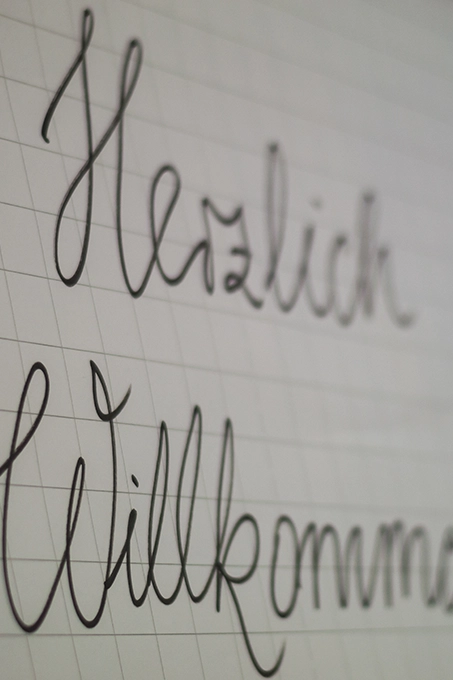 Herzlich
Willkomme